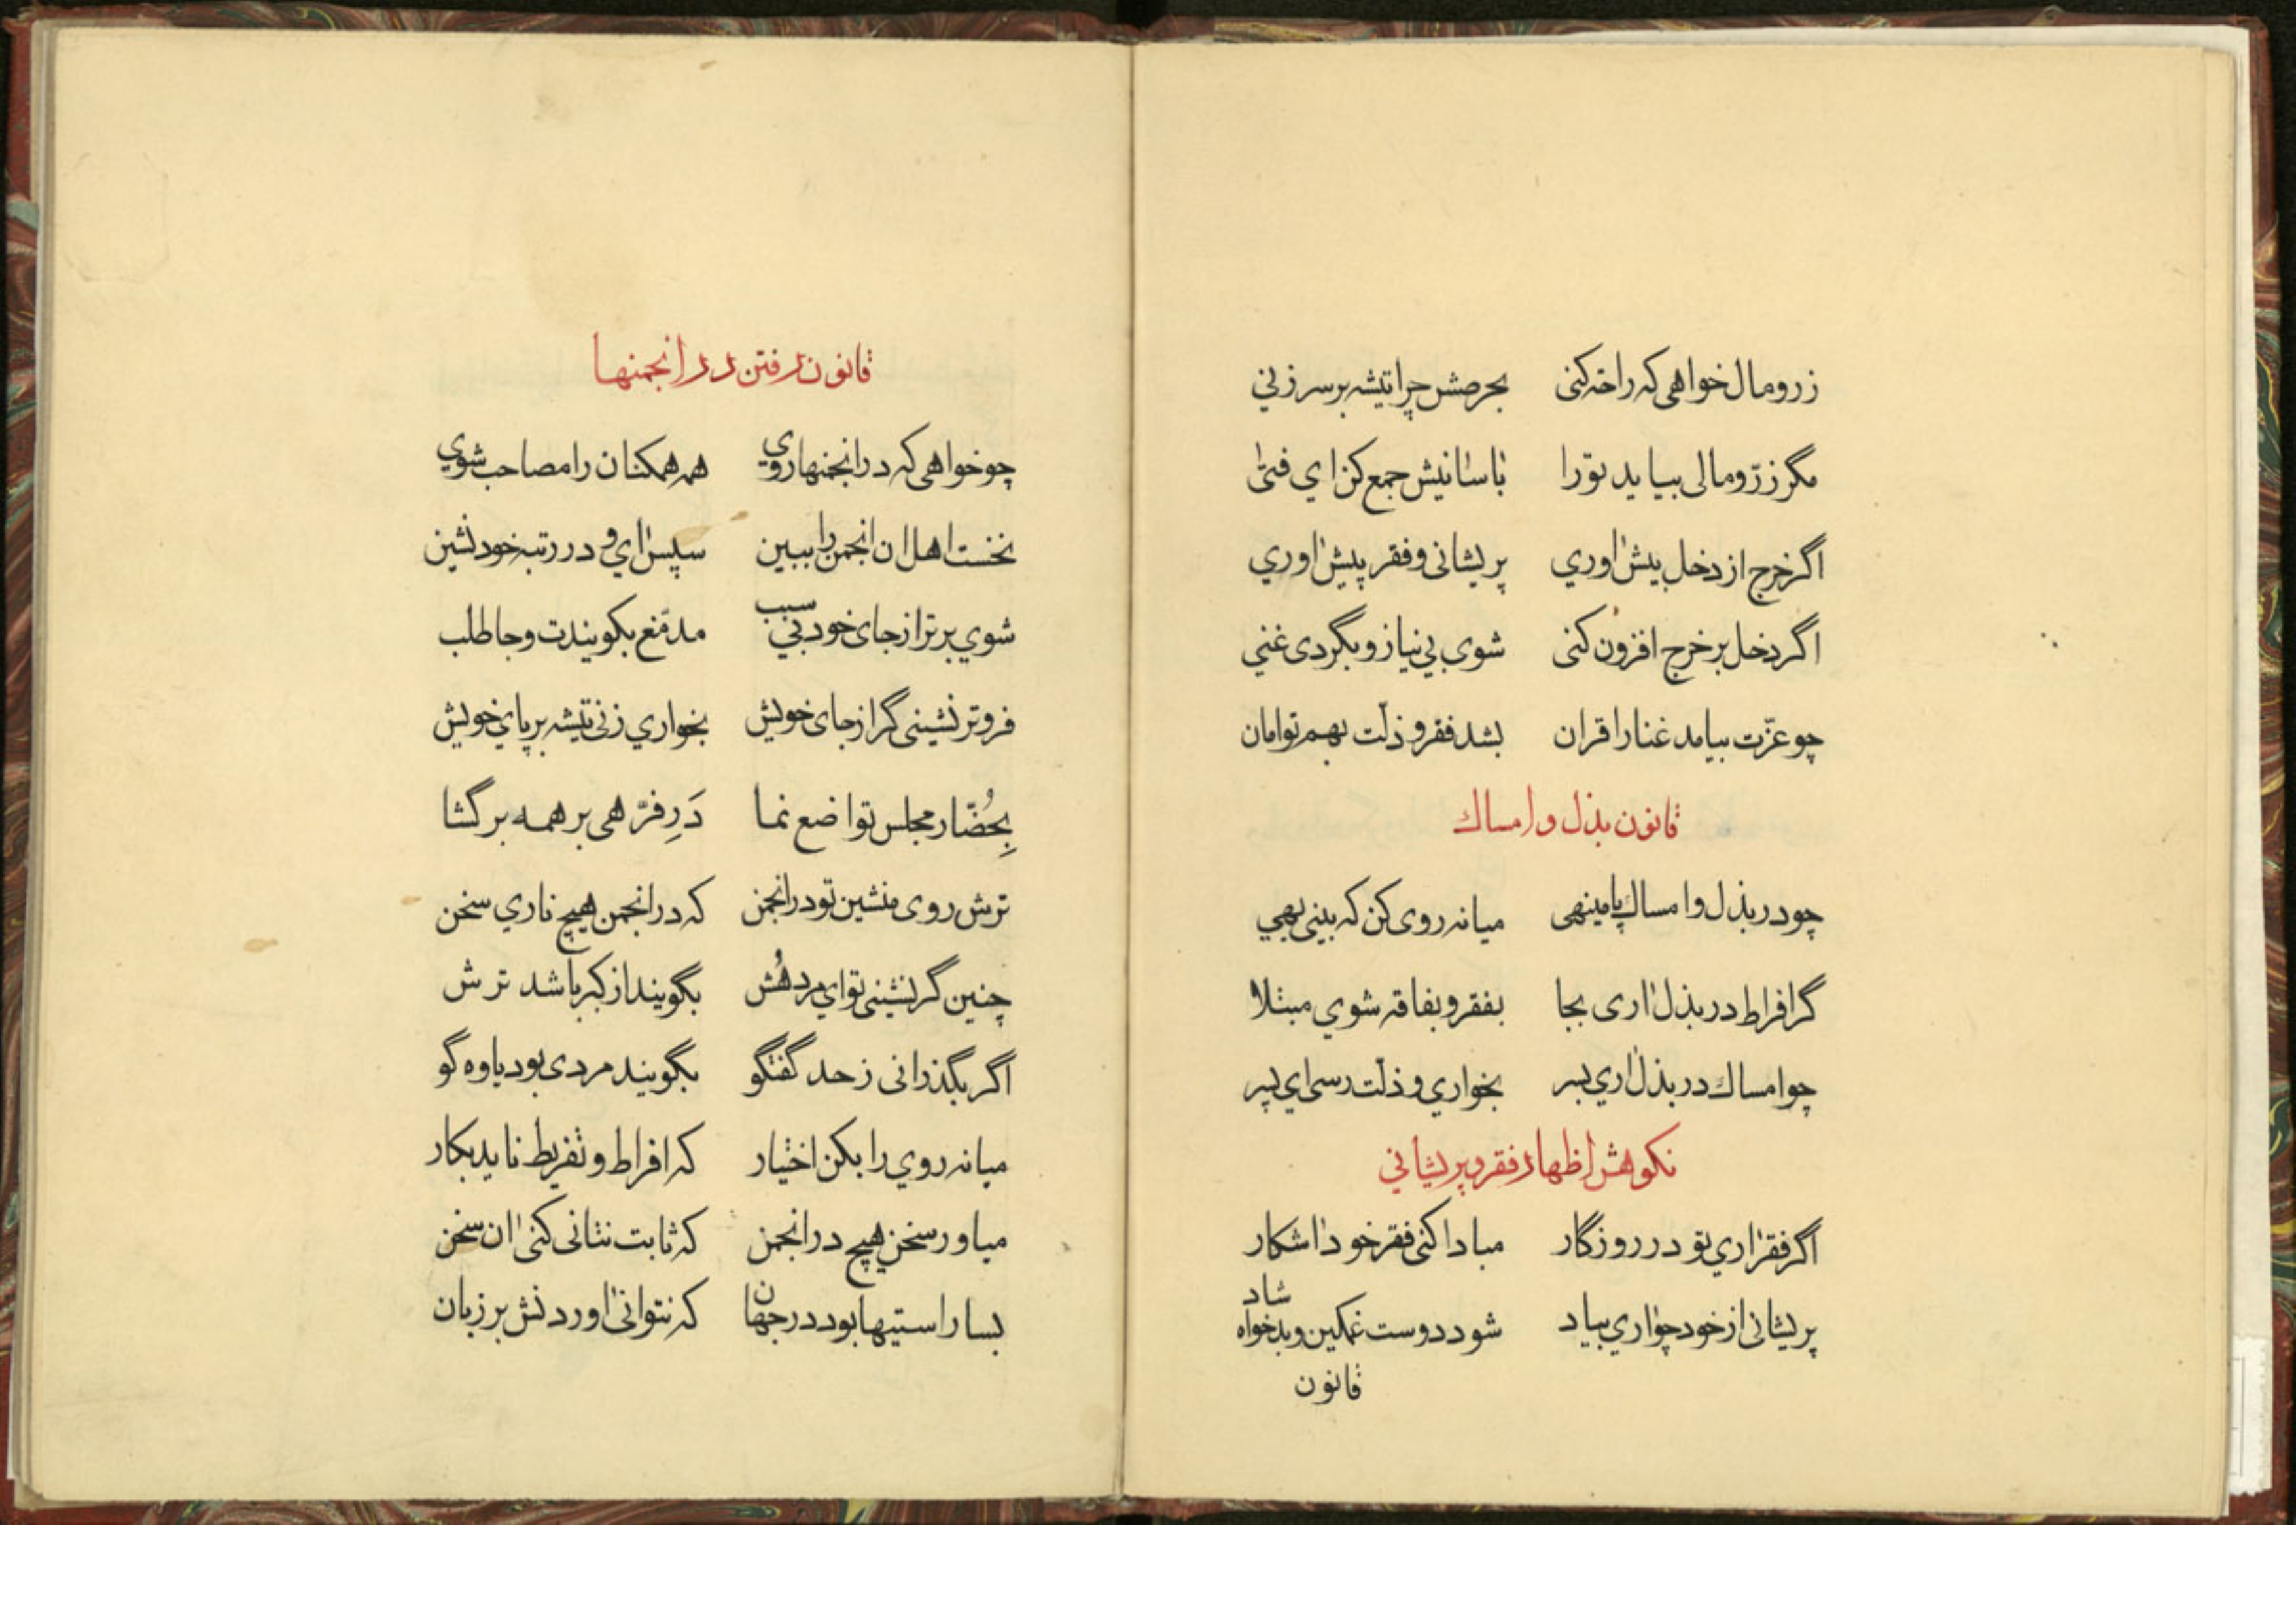 زر و مال خواهی که راحة کنی بحرصش چرا تیشه بر سر زني
مگر زرّ و مالی بیاید تو را بآسانیش جمع کن اي فتیٰ
اگر خرج از دخل بیش آوري پریشانی و فقر پیش آوري
اگر دخل بر خرج افزون کنی شوی بي نیاز و بگردی غني
چو عزّت بیامد غنا را قران بشد فقر و ذلّت بهم توامان
قانون بذل و امساك
چو در بذل و امساك پا مینهی میانه روی کن که بینی بهي
گر افراط در بذل آری بجا بفقر و بفاقه شوي مبتلا
چو امساك در بذل آري بسر بخواري و ذلّت رسی اي پسر
نکوهش اظهار فقر و پریشاني
اگر فقر آري تو در روزگار مبادا کنی فقر خود آشکار
پریشانی از خود چو آري بیاد شود دوست غمکین و بدخواه شاد
قانون
قانون رفتن در انجمنها
چو خواهی که در انجمنها روي همه همکنان را مصاحب شوي
نخست اهل ان انجمن را ببین سپس آي و در رتبه خود نشین
شوي برتر از جای خود بي سبب مدمّغ بکویندت و جاطلب
فروتر نشینی گر از جای خویش بخواري زنی تیشه بر پاي خویش
بِحُضّار مجلس تواضع نما دَرِ فرّهی بر همه برگشا
ترش روی منشین تو در انجمن که در انجمن هیچ ناري سخن
چنین گر نشینی تو اي مرد هُش بگویند از کبر باشد ترش
اگر بگذرانی ز حد گفتگو بگویند مردی بود یاوه گو
میانه روي را بکن اختیار که افراط و تفریط ناید بکار
میاور سخن هیچ در انجمن که ثابت نتانی کنی آن سخن
بسا راستیها بود در جهان که نتوانی آوردنش بر زبان